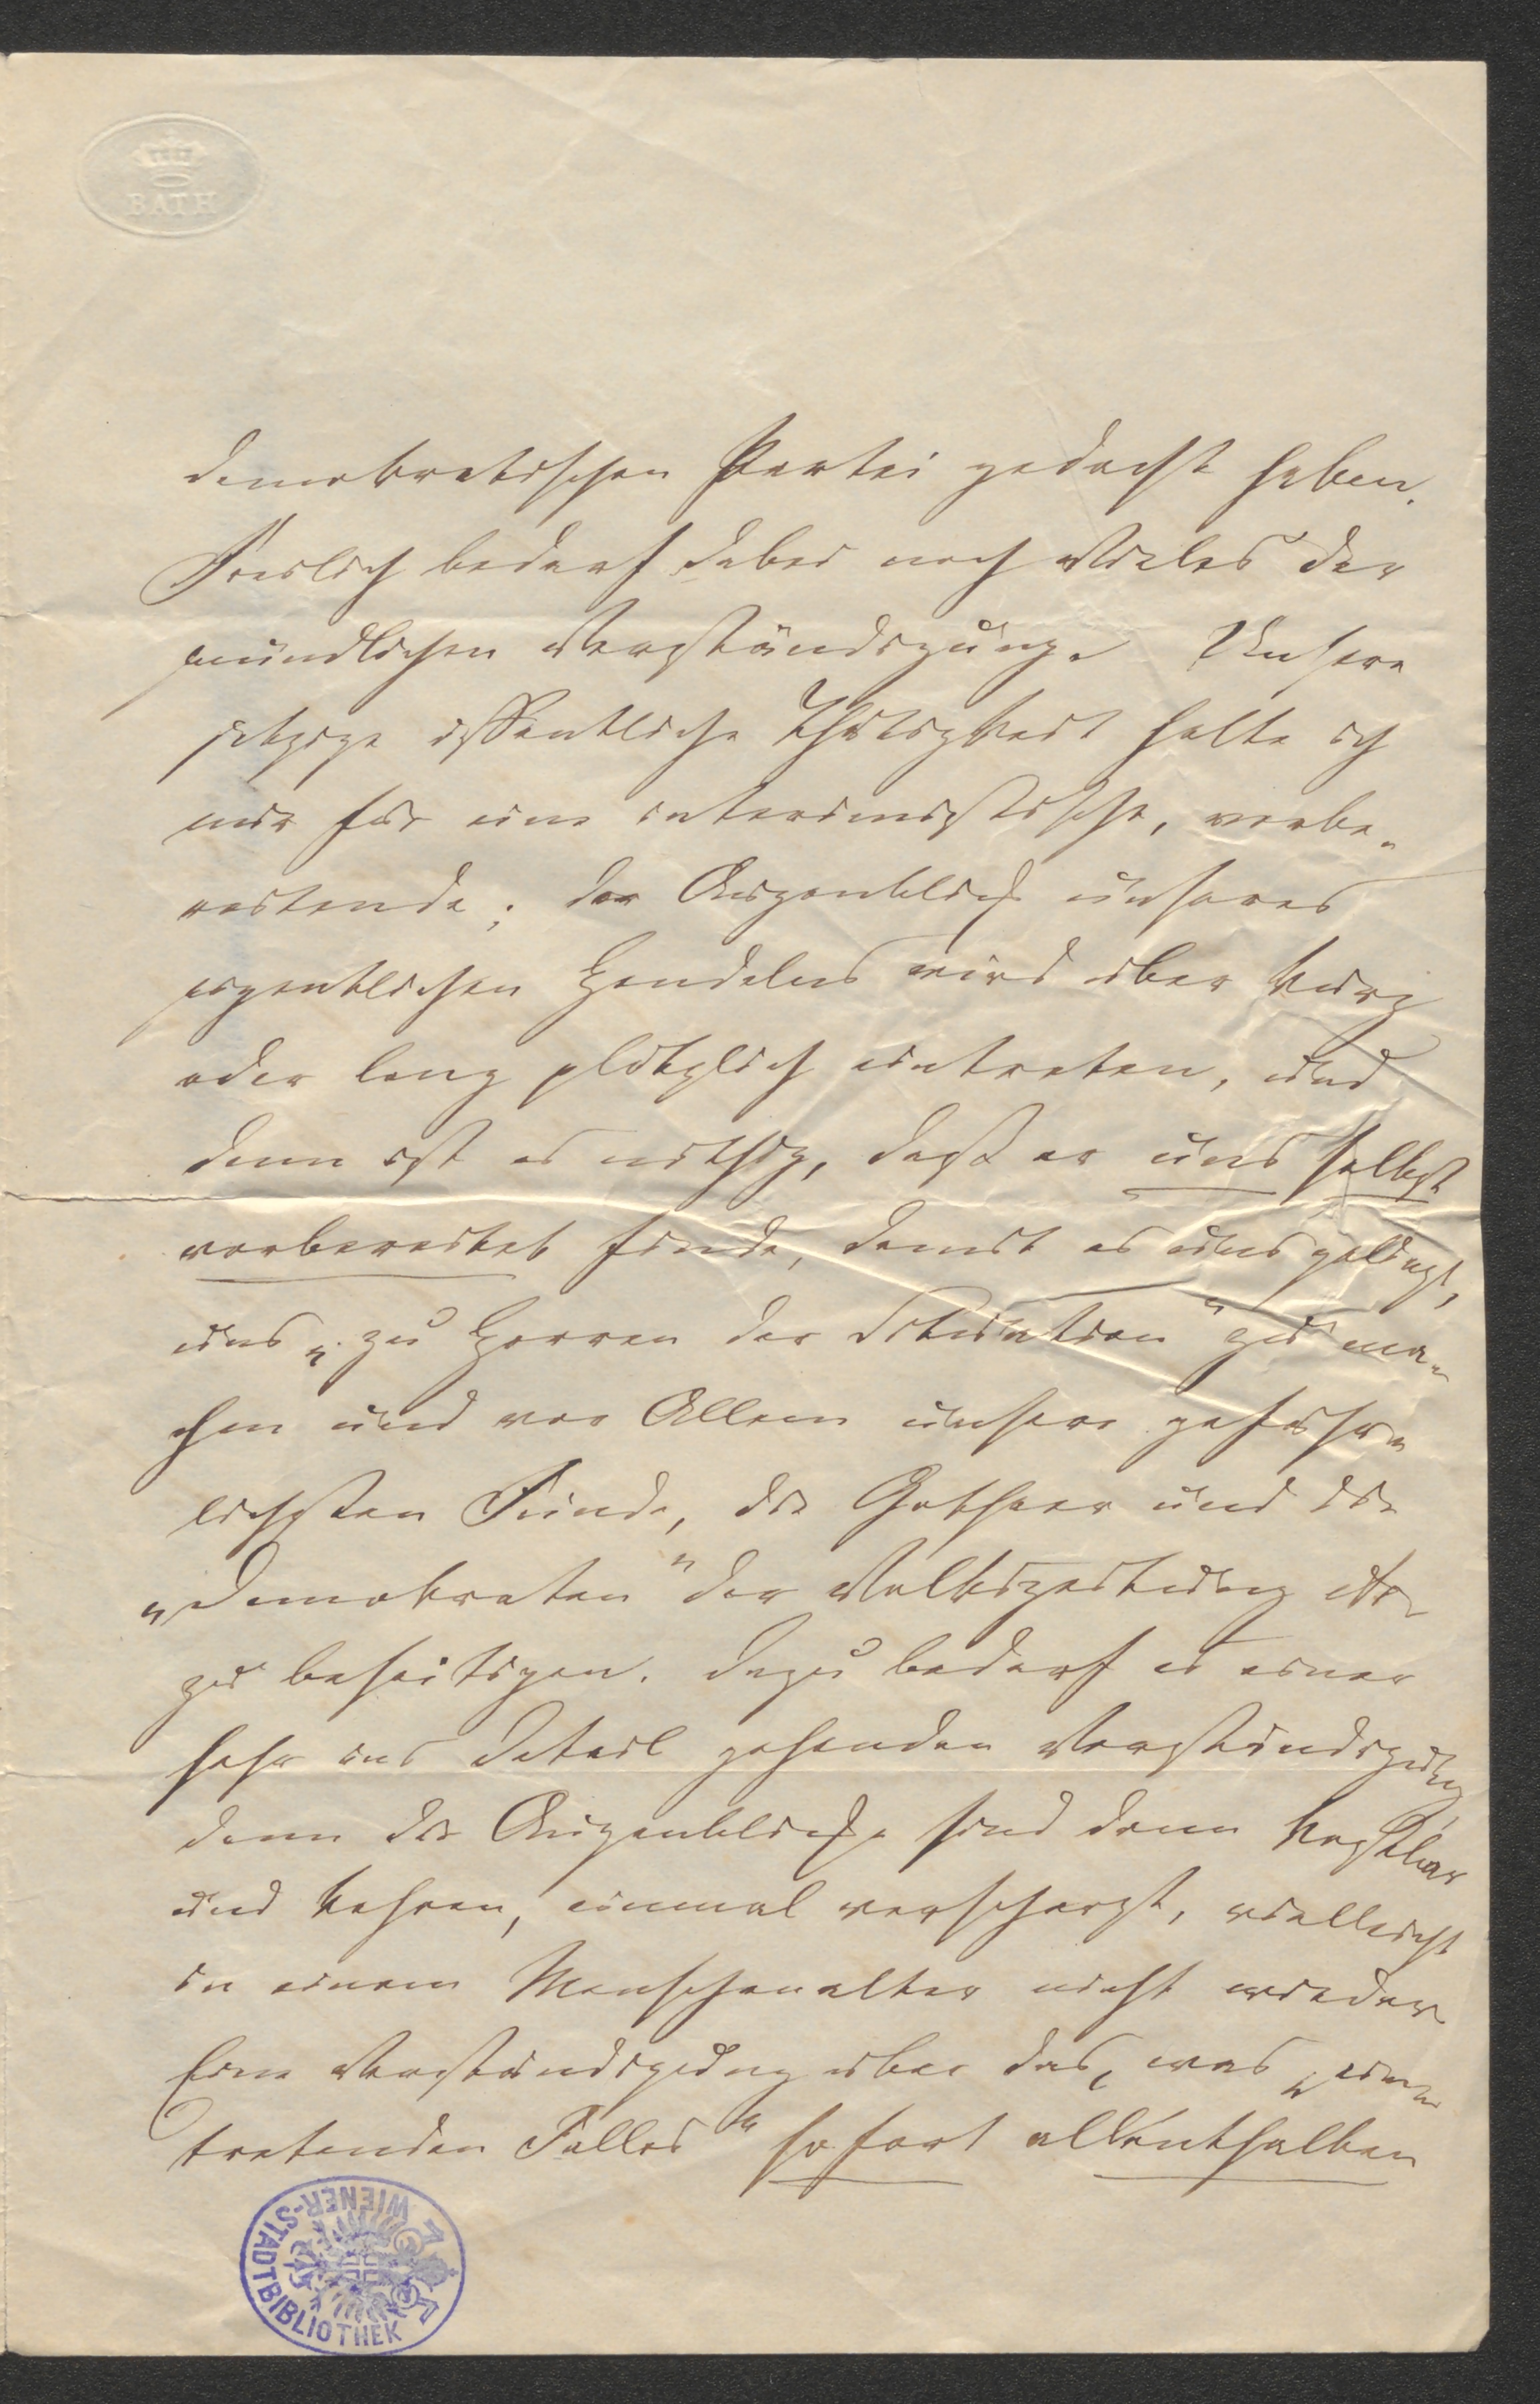 BATH
demokratischen Partei gedacht haben.
Freilich bedarf dabei noch Vieles der
mündlichen Verständigung. Unsere
jetzige öffentliche Thätigkeit halte ich
nur für eine interimistische, vorbe-
reitende; der Augenblick unseres
eigentlichen Handelns wird über kurz
oder lang plötzlich eintreten, und
dann ist es nöthig, daß er uns selbst
vorbereitet finde, damit es uns gelingt,
uns „zu Herren der Situation" zu ma-
chen und vor Allem unsere gefähr-
lichsten Feinde, die Gothaer und die
„Demokraten" der Volkszeitung etc
zu beseitigen. Dazu bedarf es einer
sehr ins Detail gehenden Verständigung,
denn die Augenblicke sind dann kostbar
und kehren, einmal verscherzt, vielleicht
in einem Menschenalter nicht wieder.
Eine Verständigung über das, was „ein-
tretenden Falles" sofort allenthalben
WIENER-STADTBIBLIOTHEK